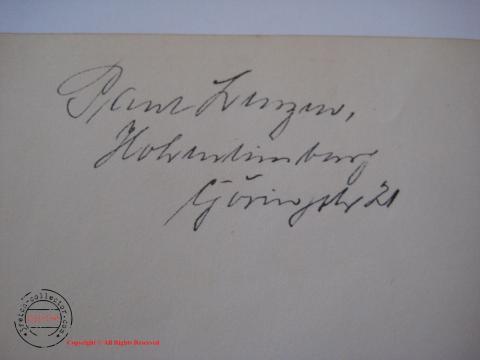 Paul Linzen,
Hohenlimburg
Göringstr 21
Copyright © All Rights Reserved